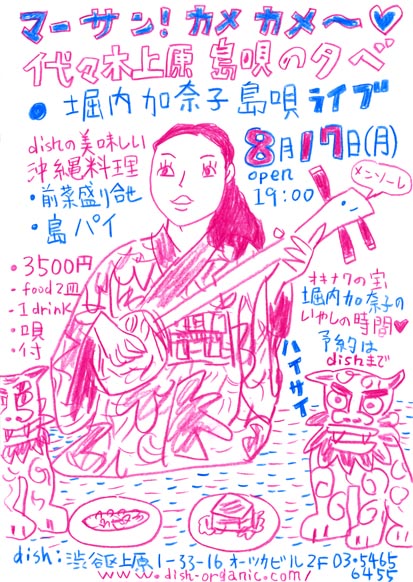 マーサン! カメカメ〜♡
代々木上原 島唄の夕べ
●堀内加奈子島唄ライブ
8月17日(月)
open
19:00
dishの美味しい
沖縄料理
・前菜盛り合せ
・島パイ
メンソーレ
・3500円
-food2皿
-1drink
・唄
・付
オキナワの宝
堀内加奈子の
いやしの時間♥
予約は
dishまで
ハイサイ
dish:渋谷区上原1-33-16 オーツカビル2F 03・5465
6455
www.dish-organic.com/